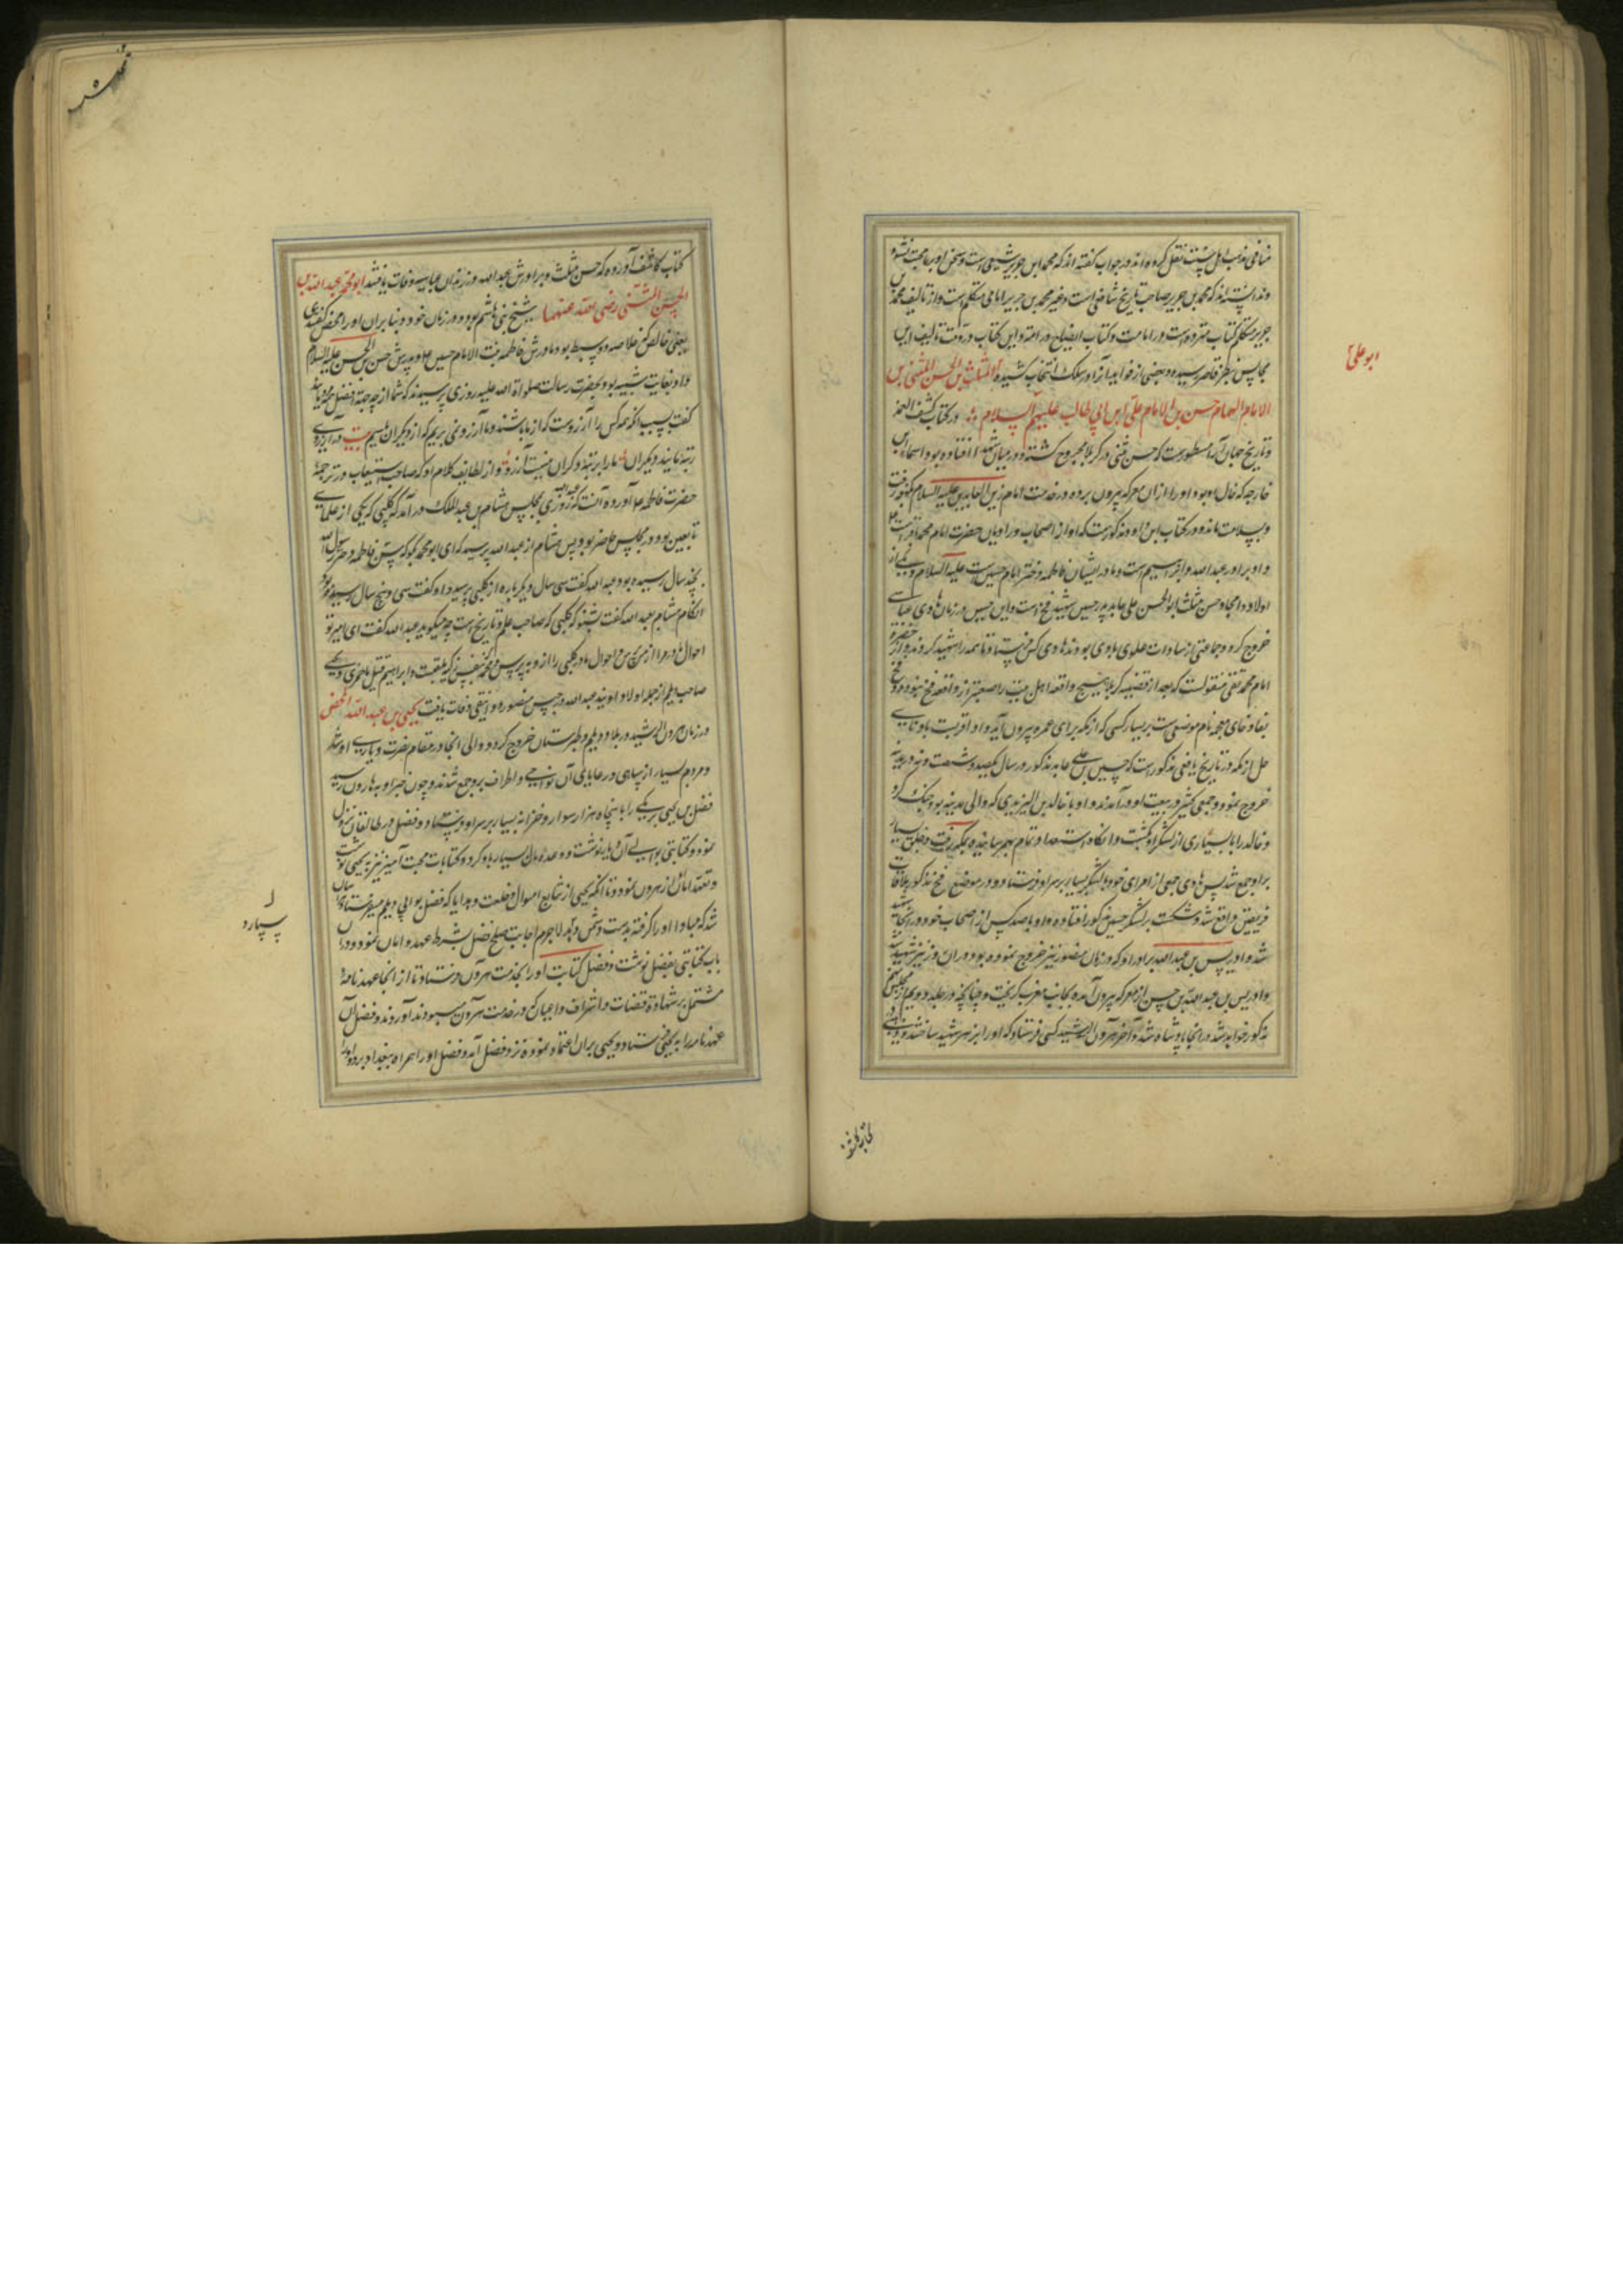 منافی مذهب اهل سنت نقل کرده اند در جواب گفته اند که محمد ابن جریر شیعی است و سخن او بر ما حجت نشود
و ندانسته اند که محمد بن جریر صاحب تاریخ شافعی است و غیر محمد بن جریر امامی متکلم است و از تالیف محمد بن
جریر متکلم کتاب مسترشد است در امامت و کتاب ایضاح در امامت و این کتاب در وقت تالیف این
مجالس بنظر قاصر رسیده و بعضی از فواید آن را در سلک انتخاب کشیده المثلث بن الحسن المثنی بن
الامام الهمام حسن بن الامام علی ابن ابی طالب علیهم السلام در کتاب کشف الغمه
ابو علی
و تاریخ مسطور است که حسن مثنی در کربلا مجروح گشته در میان افتاده بود اسماء ابن
خارجه که خال او بود او را از آن معرکه بیرون برده در خدمت امام زین العابدین علیه السلام بکوفه رفت
و بسلامت ماند و در کتاب ابن داود مذکور است که او از اصحاب و راویان حضرت امام محمد باقر است
و او برادر عبد الله و ابراهیم است و مادر ایشان فاطمه دختر امام حسین است علیه السلام و یکی از
اولاد و امجاد حسن مثلث ابو الحسن علی عابد پدر حسین شهید فخ است و این حسین در زمان هادی عباسی
خروج کرد و جماعتی از سادات علوی با وی بودند هادی کس فرستاد تا همه را شهید کردند و از حضرت
امام محمد تقی منقولست که بعد از قضیه کربلا هیچ واقعه اهل بیت را صعبتر از واقعه فخ نبود و فخ
بفا و خای معجمه نام موضعی است بر یسار کسی که از مکه برای عمره بیرون آید و او اقربست باو تا
حل از مکه در تاریخ یافعی مذکور است که حسین بن علی عابد مذکور در سال یکصد و شصت و نه در مدینه
خروج نمود و جمعی کثیر در بیعت او در آمدند و او با خالد بن الیزیدی که والی مدینه بود جنک کرد
و خالد را با بسیاری از لشکر او بکشت و انگاه استعداد تمام بهم رسانیده بمکه رفت و خلق بسیار
بر او جمع شد پس هادی جمعی از امرای خود با لشکر بسیار بر سر او فرستاد و در موضع فخ مذکور ملاقات
فریقین واقع شد و شکست بر لشکر حسین مذکور افتاده و او با صد کس از اصحاب خود در انجا شهید
شد و ادریس بن عبد الله برادر او که در زمان منصور نیز خروج نموده بود در ان روز نیز شهید شد
و ادریس بن عبد الله بن حسن از معرکه بیرون آمده بجانب مغرب گریخت و چنانچه در جلد دویم از مجلس هشتم
مذکور خواهد شد در انجا پادشاه شد و آخر هرون الرشید کسی فرستاد که او را بزهر شهید ساختند و در بعضی
کتاب کاشف آورده که حسن مثلث و برادرش عبد الله در زندان عباسیه وفات یافتند ابو محمد عبد الله بن
الحسن المثنی رضی الله عنهما شیخ بنی هاشم بود در زمان خود و بنا بران او را محض گفتندی
یعنی خالص که خلاصه دو سبط بود مادرش فاطمه بنت الامام حسین ع و پدرش حسن بن الحسن علیه السلام
و او بغایت شبیه بود بحضرت رسالت صلوات الله علیه روزی پرسیدند که شما از چه جهة افضل مردمانید
گفت بسبب انکه همه کس را آرزوست که از ما باشند و ما آرزو نمی بریم که از دیگران باشیم
رتبه ما دیگران ما را برتبه دکران نیست آرزو و از لطایف کلام او که صاحب استیعاب در ترجمه
حضرت فاطمه ع آورده آنست که روزی عبد الله بمجلس هشام بن عبد الملک در آمد که کلبی که یکی از علمای
تابعین بود در مجلس حاضر بود پس هشام از عبد الله پرسید که ای ابو محمد بگو که سن فاطمه دختر رسول الله
بچند سال رسیده بود عبد الله گفت سی سال و دیگر باره از کلبی پرسید او گفت سی و پنج سال رسیده بود
انگاه هشام بعبد الله گفت بشنو که کلبی که صاحب علم و تاریخ است چه میگوید عبد الله گفت ای امیر تو
احوال مادر مرا از من بپرس و احوال مادر کلبی را از و بپرس و محمد نفس زکیه ملقب و ابراهیم قتیل باخمری و یحیی
صاحب دیلم از جمله اولاد اویند عبد الله در حبس منصور دوانیقی وفات یافت یحیی بن عبد الله المحض
در زمان هرون الرشید در بلاد دیلم و طبرستان خروج کرد و والی انجا در مقام نصرت و یاری او شد
و مردم بسیار از سپاهی و رعایای آن نواحی و اطراف برو جمع شدند و چون خبر او به هارون رسید
فضل بن یحیی برمکی را با پنجاه هزار سوار و خزانه بسیار بر سر او فرستاد و فضل در طالقان نزول
نمود و کتابتی بوالی آن دیار نوشت و وعده مال بسیار باو کرد و کتابات محبت آمیز نیز به یحیی نوشت
و تعهد امان از هرون نمود و تا انکه یحیی از اموال و خلعت و هدایا که فضل بوالی دیلم میفرستاد
سپارد
شد که مبادا او را گرفته بدست دشمن لاجرم اجابت صلح فضل بشرط عهد و امان نمود و در
باب کتابتی بفضل نوشت و فضل کتابت او را بخدمت هرون فرستاد تا از انجا عهد نامه
مشتمل بر شهادة قضات و اشراف و اعیان که در خدمت هرون میبودند آوردند و فضل آن
عهد نامه را به یحیی فرستاد و یحیی بران اعتماد نموده نزد فضل آمد و فضل او را همراه ببغداد برد و او را